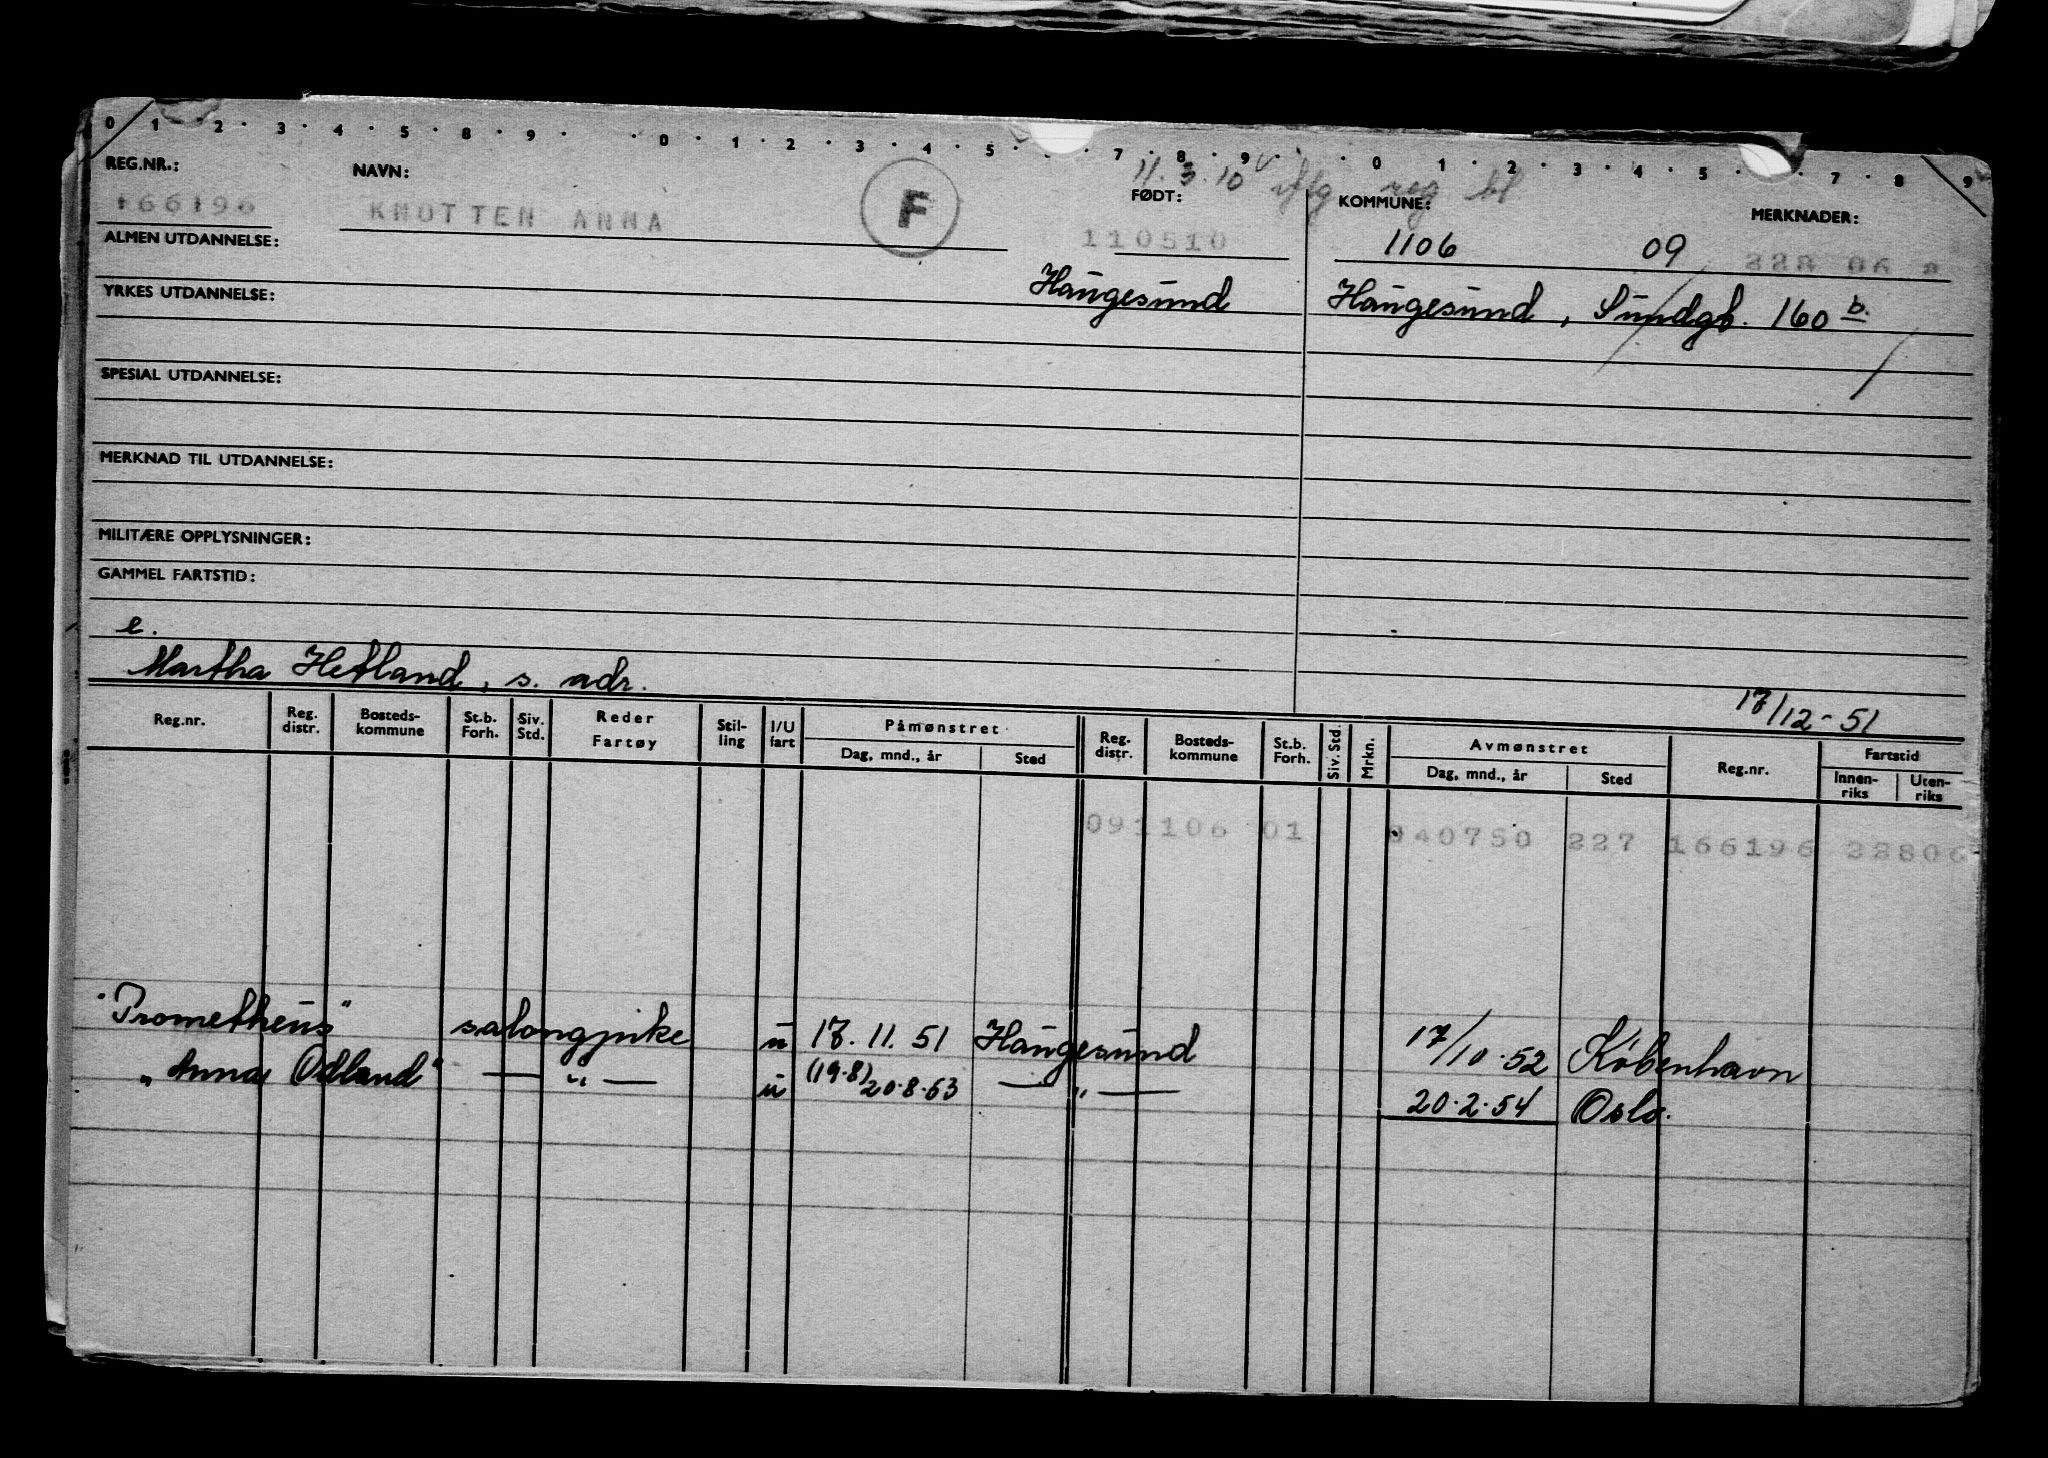 0 1 · 2 · 3 · 4 · 5 · 8 · 9 · · 0 · 1 · 2 · 3 · 4 · 5 · · 7 · 8 · 9 · · 0 · 1 · 2 · 3 · 4 · 5 · · 7 · 8 · 9
REG.NR.: NAVN: FØDT: 11.3.10 KOMMUNE: reg MERKNADER:
166196 KNOTTEN ANNA F 110510 1106 09
ALMEN UTDANNELSE:
Haugesund Haugesund, Sundgt. 160 b.
YRKES UTDANNELSE:
SPESIAL UTDANNELSE:
MERKNAD TIL UTDANNELSE:
MILITÆRE OPPLYSNINGER:
GAMMEL FARTSTID:
e.
Martha Hetland, s. adr.
17/12-51
Reg.nr. Reg. distr. Bosteds-kommune St.b. Forh. Siv. Std. Reder Fartøy Stil-ling I/U fart Påmønstret Dag, mnd., år Sted Reg. distr. Bosteds-kommune St.b. Forh. Siv. Std. Mrkn. Avmønstret Dag, mnd., år Sted Reg.nr. Fartstid Innen-riks Uten-riks
091106 01 040750 227 166196 22806
"Prometheus" salongpike u 17.11.51 Haugesund 17/10.52 København
"Anna Odland" — " — u (19.8) 20.8.53 — " — 20.2.54 Oslo.